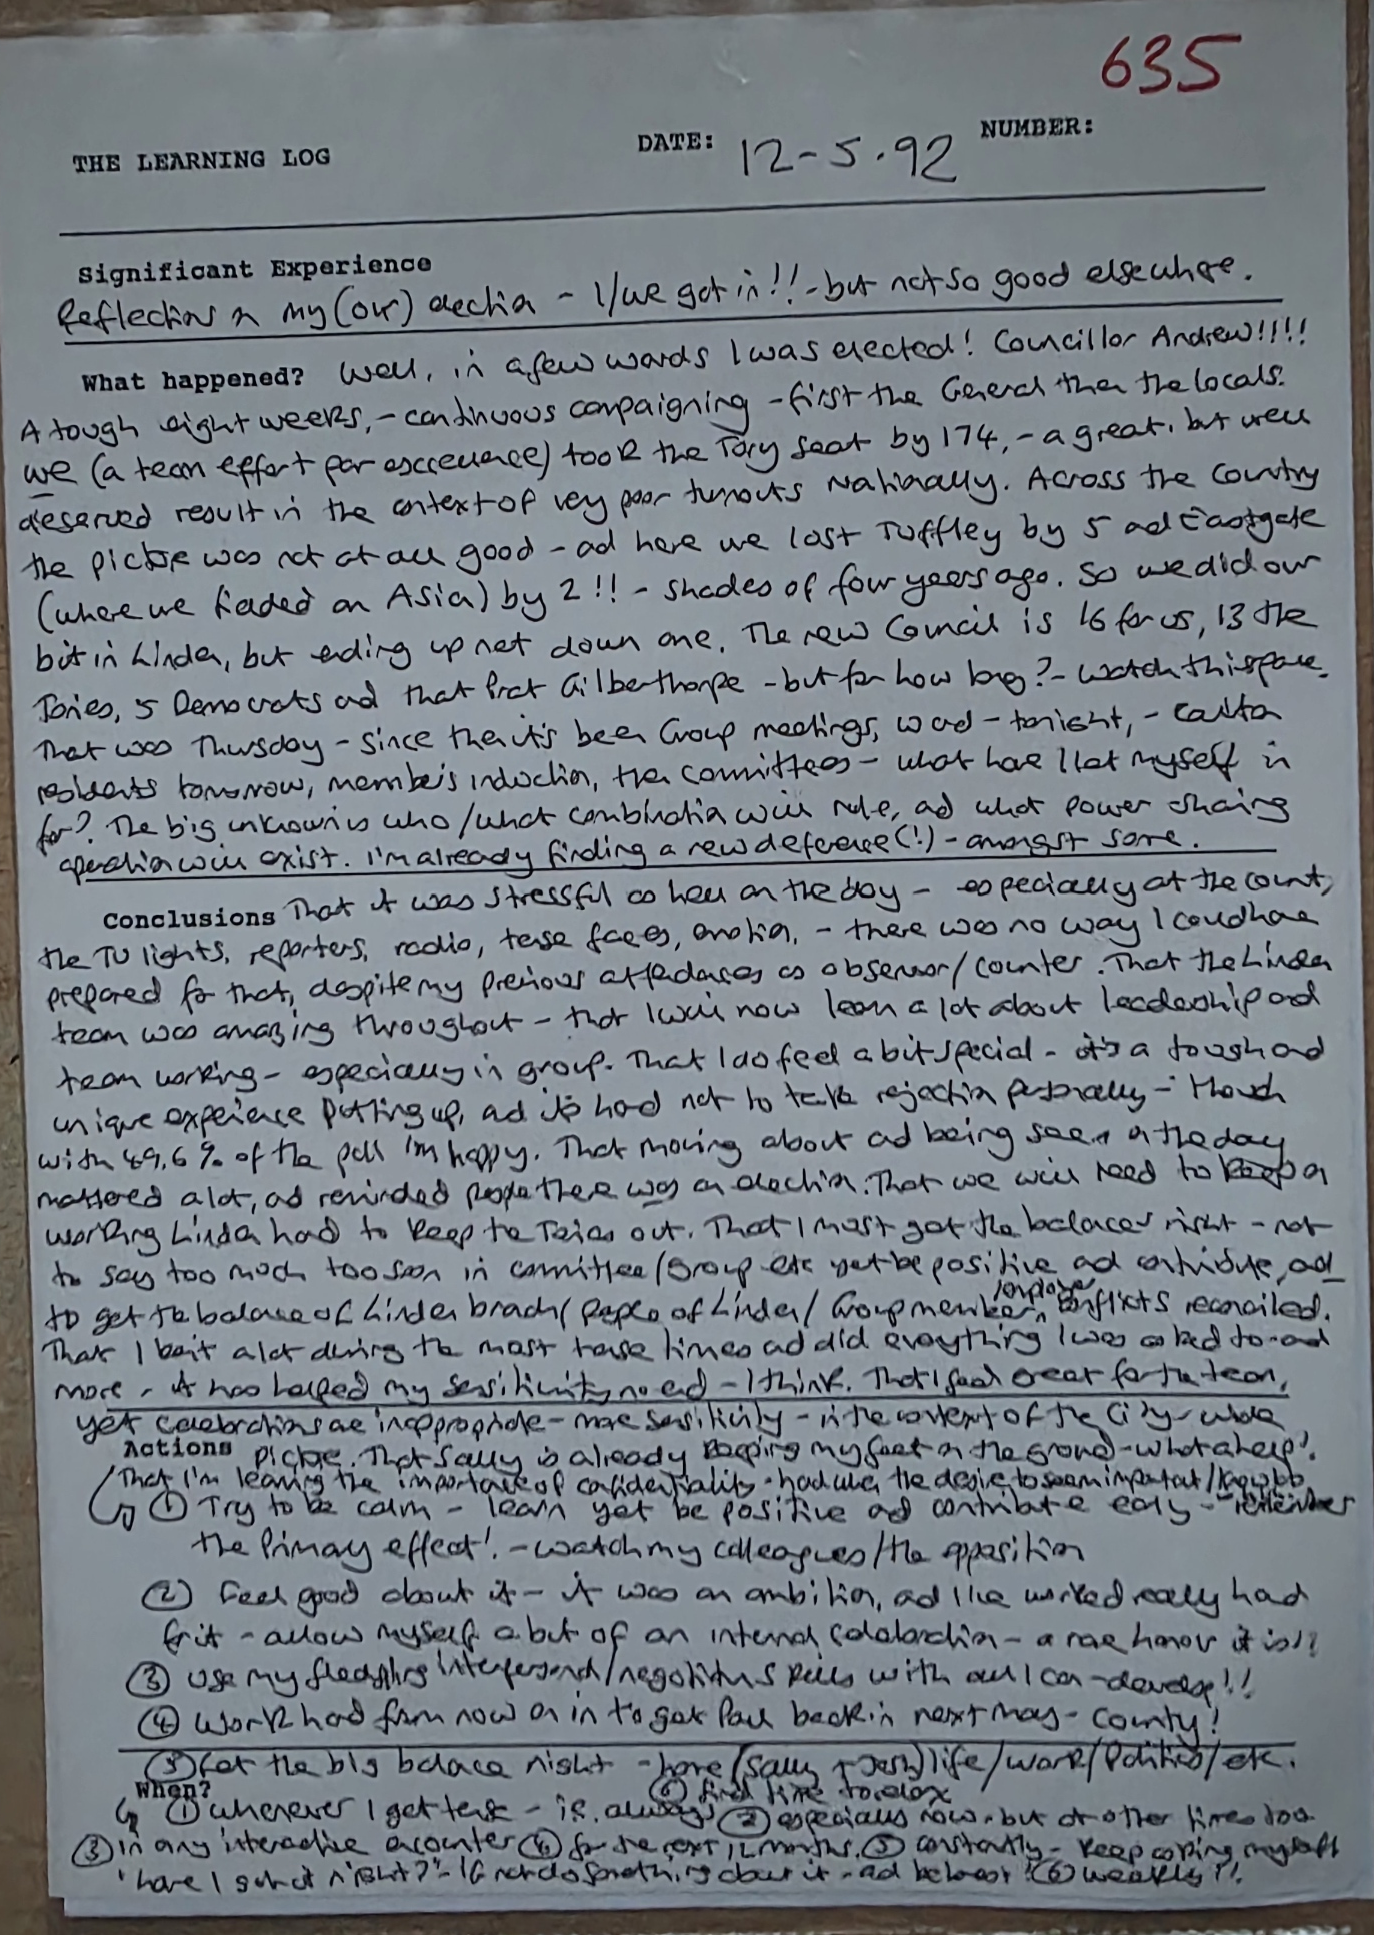 635
THE LEARNING LOG DATE: 12-5.92 NUMBER:
Significant Experience
Reflections on my (our) election - I/we got in!! - but not so good elsewhere.
What happened? Well, in a few words I was elected! Councillor Andrew!!!!
A tough eight weeks, - continuous campaigning - first the General then the locals.
We (a team effort par excellence) took the Tory seat by 174, - a great, but well
deserved result in the context of very poor turnouts Nationally. Across the Country
the picture was not at all good - and here we lost Tuffley by 5 and Eastgate
(where we fielded an Asian) by 2!! - shades of four years ago. So we did our
bit in Linden, but ending up net down one. The new Council is 16 for us, 13 the
Tories, 5 Democrats and that Prat Gilberthorpe - but for how long? - watch this space.
That was Thursday - since then it's been Group meetings, ward - tonight, -
residents tomorrow, members induction, then committees - what have I let myself in
for? The big unknown is who/what combination will rule, and what power sharing
operation will exist. I'm already finding a new deference (!) - amongst some.
Conclusions That it was stressful as hell on the day - especially at the count,
the TV lights, reporters, radio, tense faces, emotion, - there was no way I could have
prepared for that, despite my previous attendances as observer/counter. That the Linden
team was amazing throughout - that I will now learn a lot about leadership and
team working - especially in group. That I do feel a bit special - it's a tough and
unique experience putting up, and it's hard not to take rejection personally - though
with 49.6% of the poll I'm happy. That moving about and being seen on the day
mattered a lot, and reminded people there was an election. That we will need to keep on
working Linden hard to keep the Tories out. That I must get the balances right - not
to say too much too soon in committee/Group etc yet be positive and contribute, and
to get the balance of Linden branch/People of Linden/Group member/employer conflicts reconciled.
That I bent a lot during the most tense times and did everything I was asked to - and
more - it has helped my sensitivity no end - I think. That I feel great for the team,
yet celebrations are inappropriate - more sensitivity - in the context of the City-wide
Actions picture. That Sally is already keeping my feet on the ground - what a help!
That I'm learning the importance of confidentiality - hard when the desire to seem important/
① Try to be calm - learn yet be positive and contribute early - remember
the Primacy effect! - watch my colleagues/the opposition
② Feel good about it - it was an ambition, and I've worked really hard
for it - allow myself a bit of an internal celebration - a rare honour it is!!
③ Use my fledgling interpersonal/negotiating skills with all I can - develop!!
④ Work hard from now on in to get Paul back in next May - County!
⑤ Get the big balance right - home (Sally + Josh) life/work/Politics/etc.
⑥ find time to relax
When?
① Whenever I get tense - i.e. always ② especially now - but at other times too
③ in any interactive encounter ④ for the next 12 months. ⑤ constantly - keep asking myself
'have I got it right?' - if not do something about it - and be honest! ⑥ weekly!!